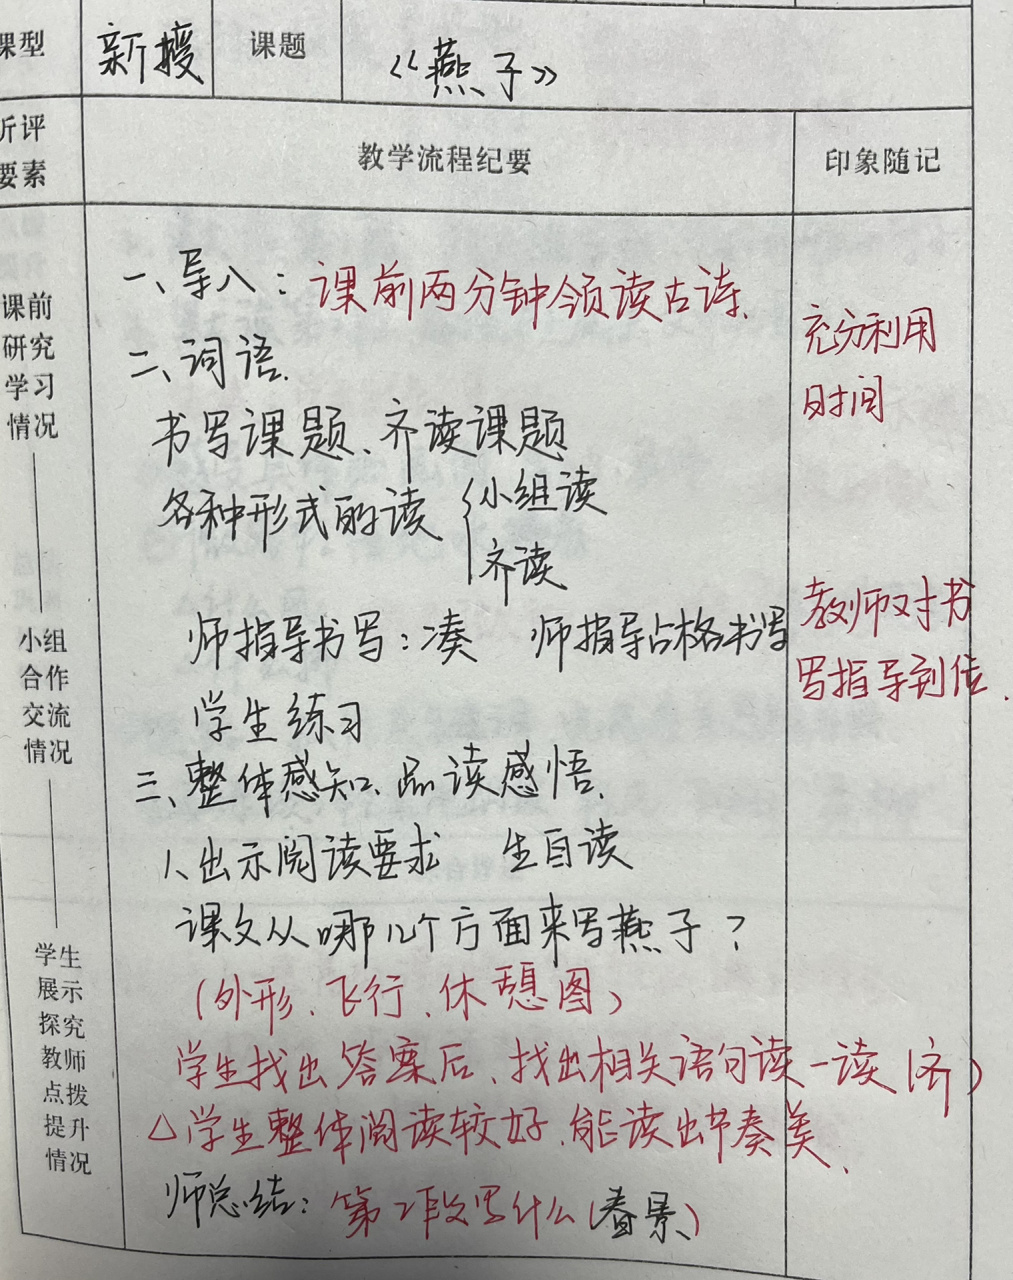 课型 新授 课题 《燕子》
听评要素 教学流程纪要 印象随记
课前
研究
学习
情况
小组
合作
交流
情况
学生
展示
探究
教师
点拨
提升
情况
一、导入：课前两分钟领读古诗.
二、词语.
书写课题、齐读课题
各种形式的读 { 小组读
齐读
师指导书写：凑 师指导占格书写
学生练习
三、整体感知、品读感悟.
1、出示阅读要求 生自读
课文从哪几个方面来写燕子？
（外形、飞行、休憩图）
学生找出答案后、找出相关语句读一读（齐）
△学生整体阅读较好、能读出节奏美、
师总结：第2段写什么（春景）
充分利用
时间
教师对书
写指导到位.